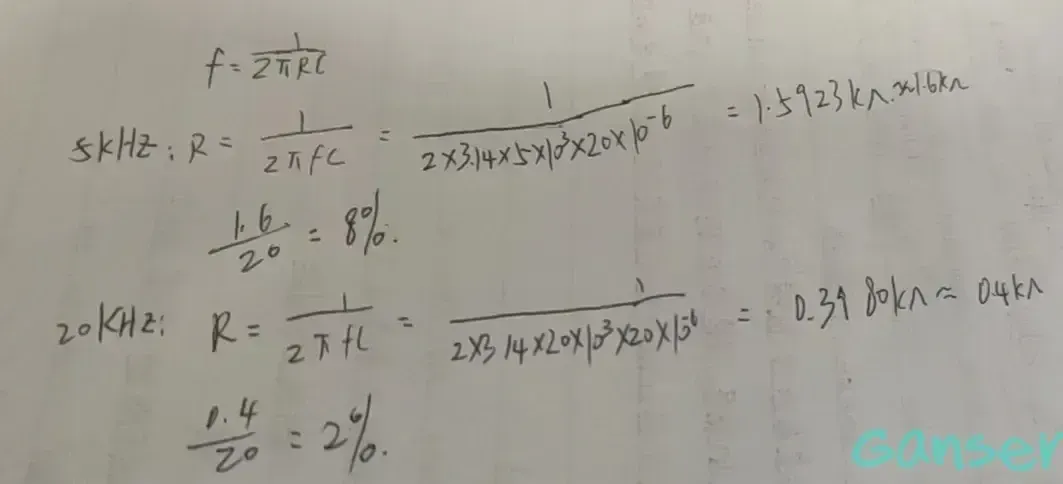 f = 1/(2πRC)
5kHz: R = 1/(2πfC) = 1/(2×3.14×5×10³×20×10⁻⁶) = 1.5923kΩ.≈1.6kΩ
1.6/20 = 8%.
20KHz: R = 1/(2πfC) = 1/(2×3.14×20×10³×20×10⁻⁶) = 0.3980kΩ ≈ 0.4kΩ
0.4/20 = 2%.
Ganser